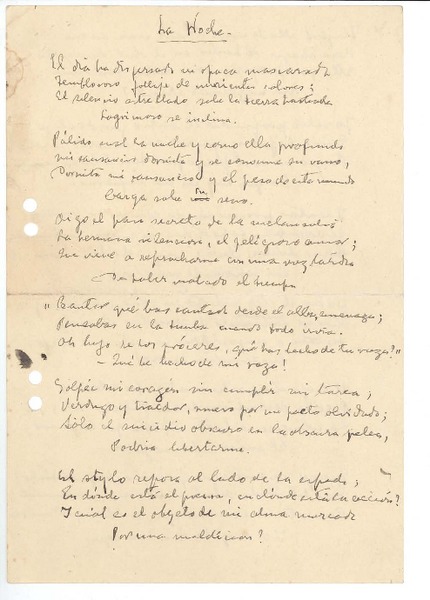 La Noche.-
El día ha dispersado su opaca mascarada
Tembloroso follaje de murientes colores;
El silencio estrellado sobre la tierra
Lagrimoso se inclina.
Pálido cual la noche y como ella profundo
mi cansancio dormita y se consume en vano,
Dormita mi cansancio y el peso de este mundo
Carga sobre mi seno.
Oigo el paso secreto de la melancolía
La hermana silenciosa, el peligroso amor;
Que viene a reprocharme con una voz tardía
De haber matado el tiempo
"Cantor qué has cantado desde el alba
Pensabas en la tumba cuando todo vivía.
Oh hijo de los próceres, qué has hecho de tu raza?"
- Qué he hecho de mi raza!
Golpée mi corazón sin cumplir mi tarea;
Verdugo y traidor, muero por un pacto olvidado;
Sólo el suicidio obscuro en la obscura pelea,
Podría libertarme.
El stylo reposa al lado de la espada;
En dónde está el poema, en dónde está la acción?
Y cuál es el objeto de mi alma marcada
Por una maldición?